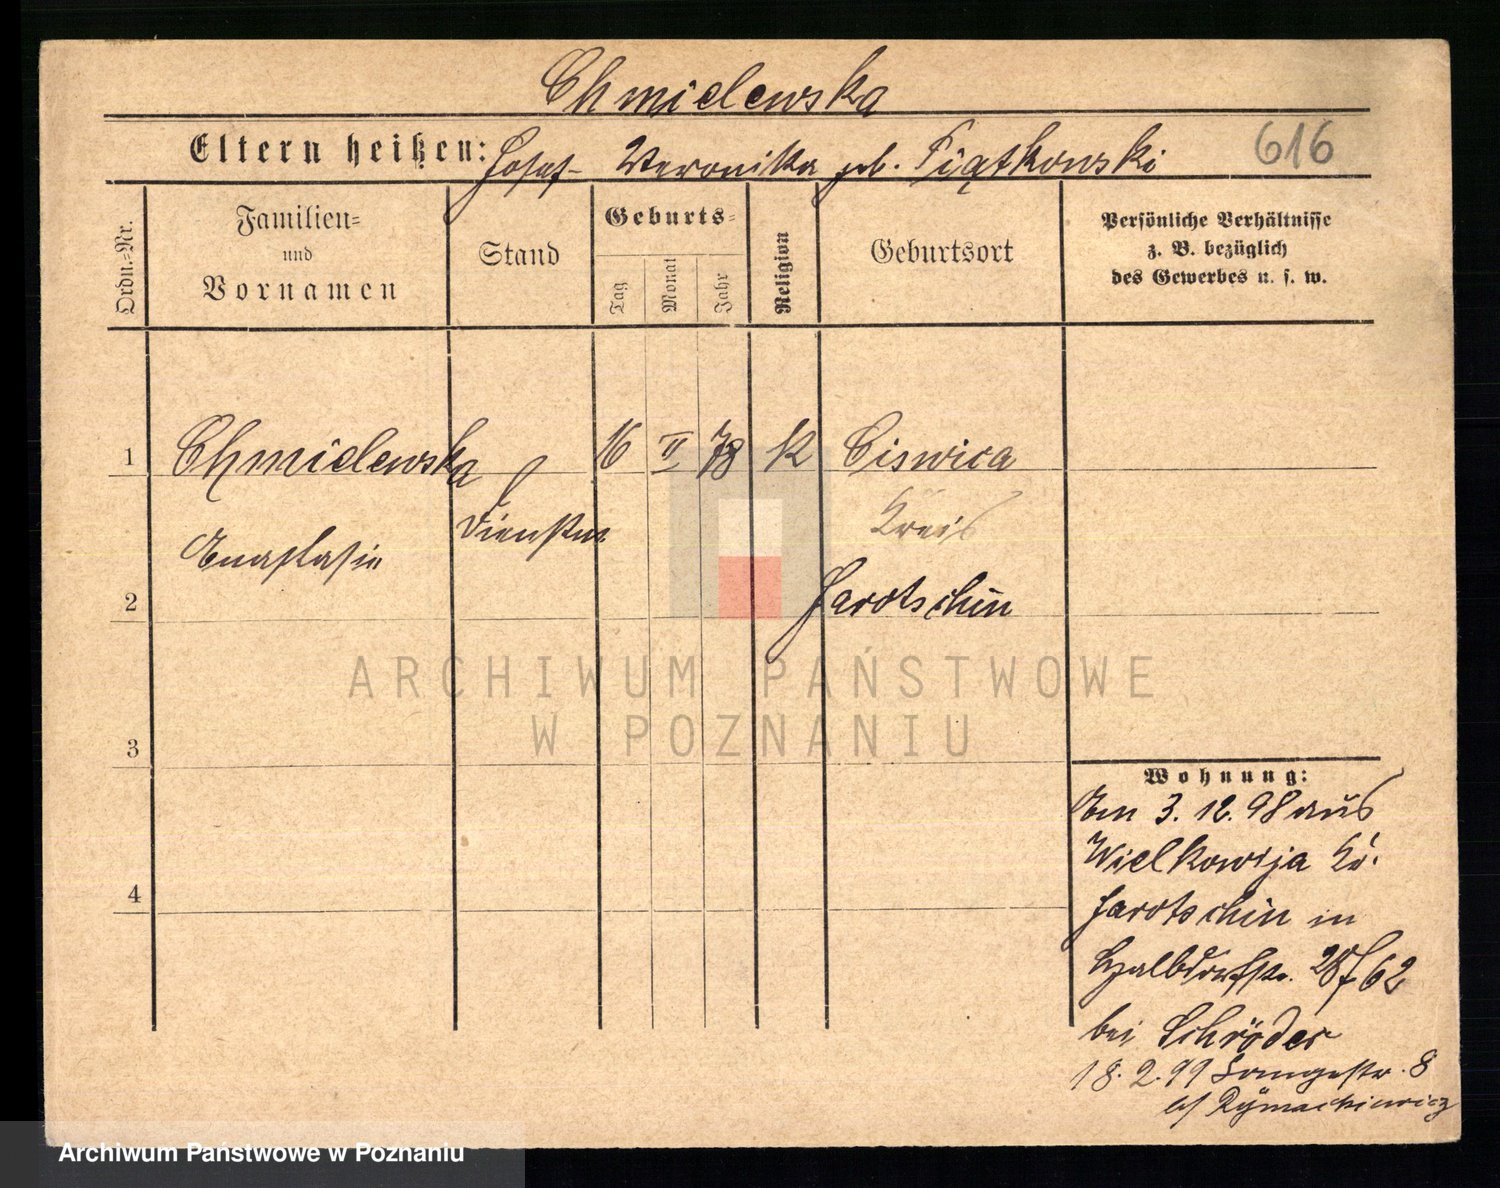 Chmielewska
Eltern heißen: Josef - Veronika geb. Piątkowski
616
Ordn.-Nr.
Familien- und Vornamen
Stand
Geburts-
Tag
Monat
Jahr
Religion
Geburtsort
Persönliche Verhältnisse
z. B. bezüglich
des Gewerbes u. s. w.
1 Chmielewska 16 II 78 K Ciswica
Kreis
Anastasia
Jarotschin
2
3
4
Wohnung:
Am 3. 12. 98 aus
Wielkowija Kr.
Jarotschin in
Halbdorfstr.
bei Schröder
18. 2. 99 Langestr. 8
ARCHIWUM PAŃSTWOWE
W POZNANIU
Archiwum Państwowe w Poznaniu